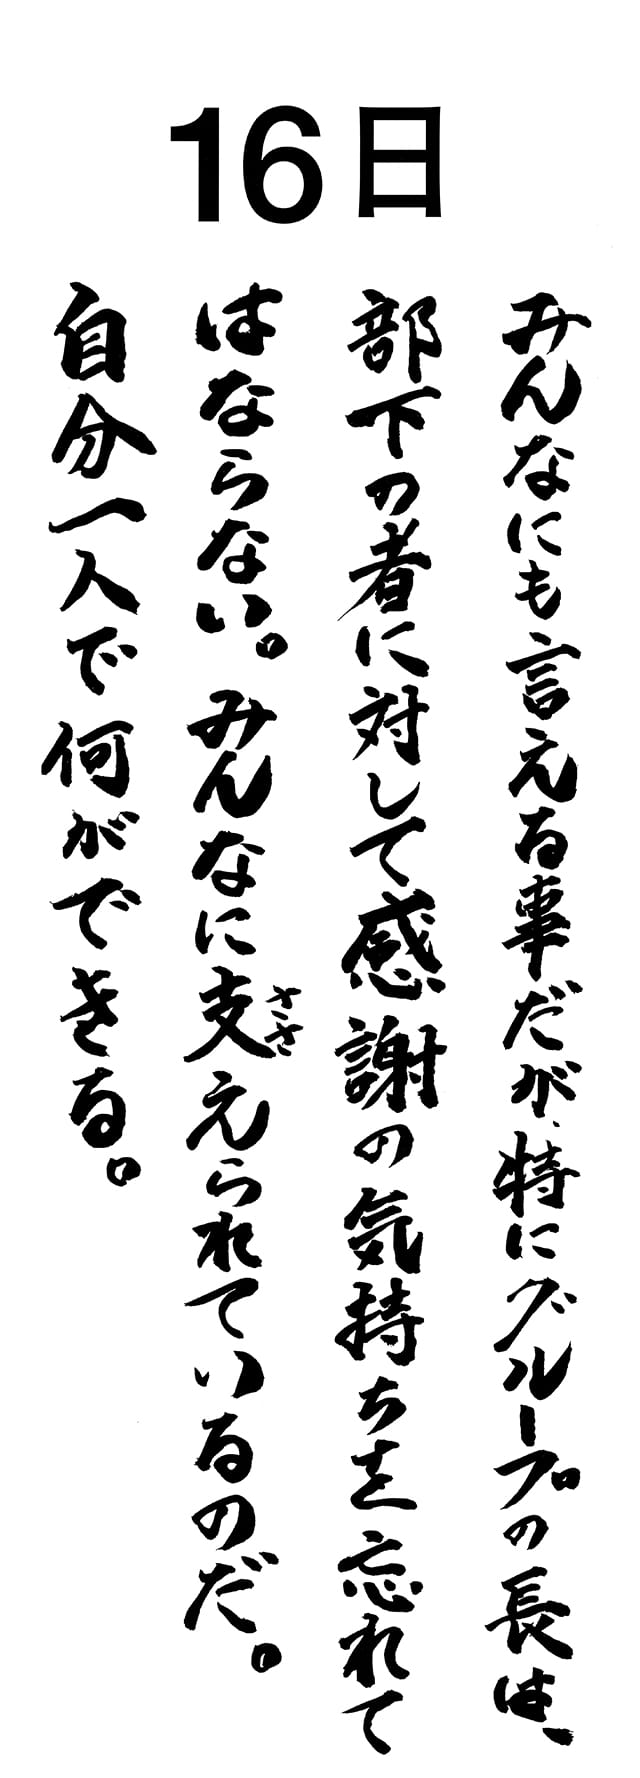 16日
みんなにも言える事だが、特にグループの長は、
部下の者に対して感謝の気持ちを忘れて
はならない。みんなに支えられているのだ。
ささ
自分一人で何ができる。